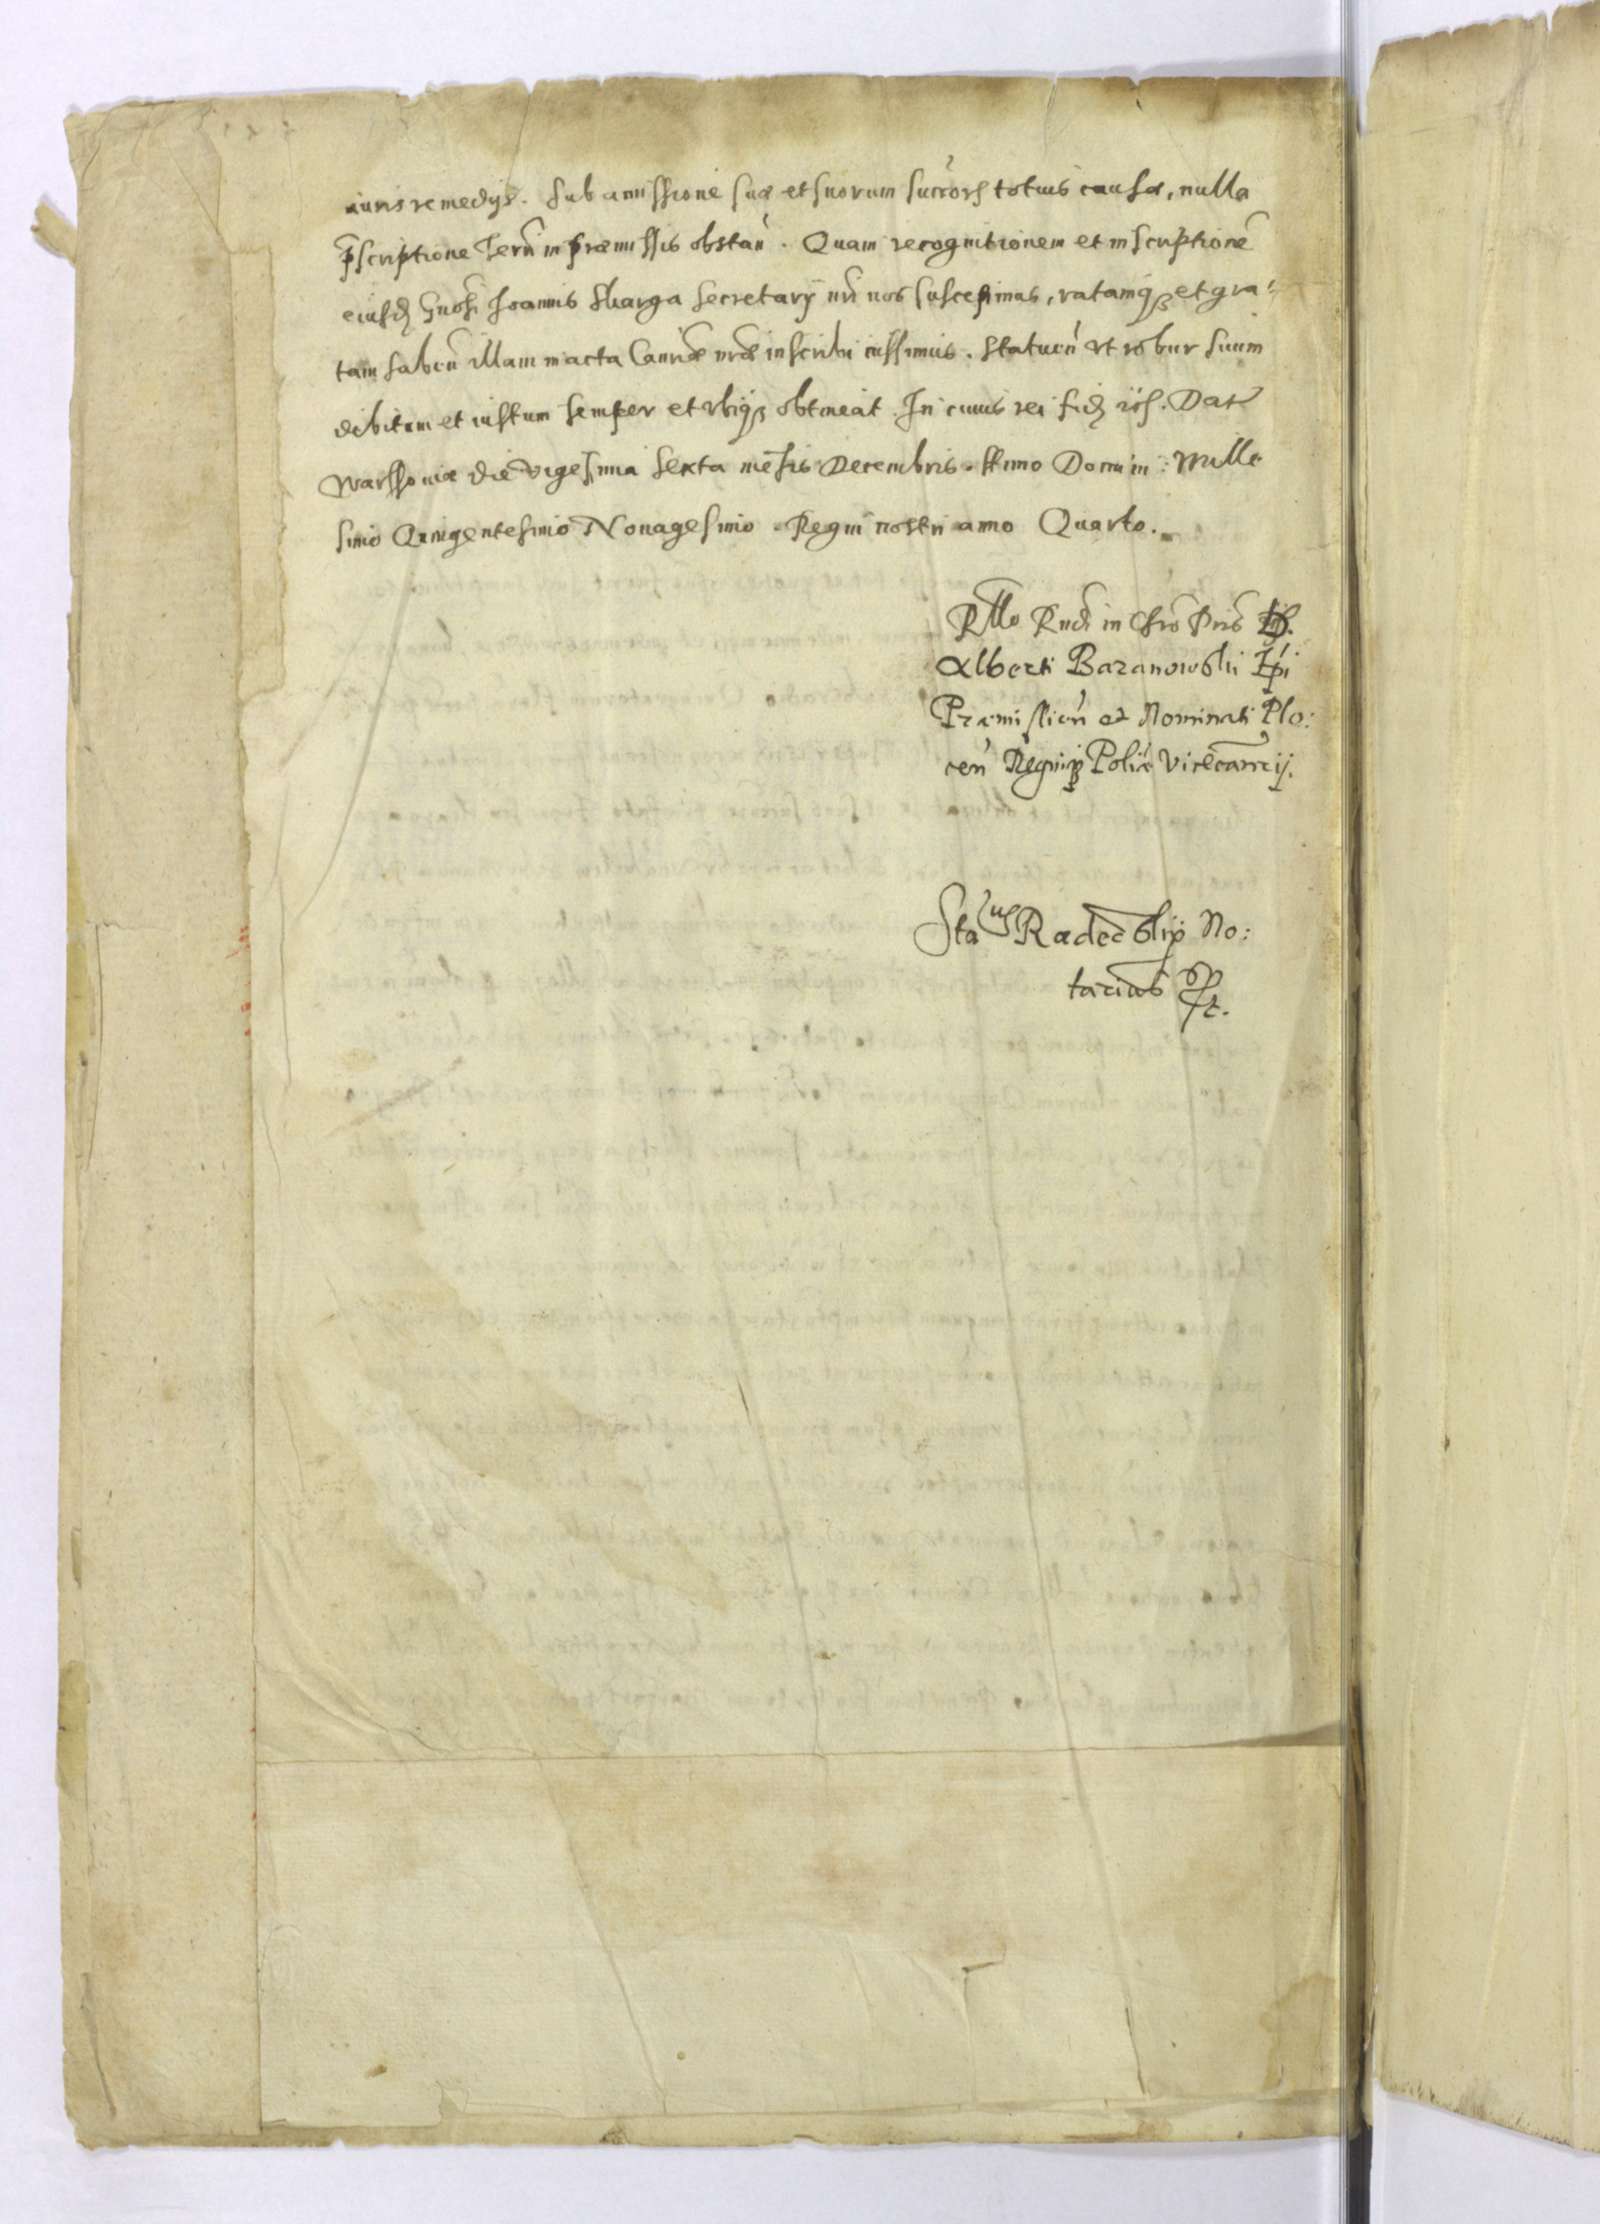 iuris remedys. Sub amissione suæ et suorum succors̃ totius causæ, nulla
p̃scriptione terrũ in præmissis obstañ. Quam recognitionem et inscriptionẽ
eiusd̃ Gnosi Joannis Skarga Secretarÿ nr̃i nos suscepimus, ratamq3 et gra:
tam haben̄ illam in acta Canr̃æ nr̃æ inscribi iussimus. Statuen̄ vt robur suum
debitum et iustum semper et vbiq3 obtineat. In cuius rei fid̃ &c. Dat̃
Warssoviæ die Vigesima sexta mẽsis Decembris. Anno Domini: Mille
simo Quingentesimo Nonagesimo. Regni nostri anno Quarto.
Rllo Rñdi in Chro Pr̃is D.
Alberti Baranowskii Ep̃i
Præmislien̄ et Nominati Plo:
cen̄ Regniq3 Poliæ Vicecanrij.
Staus Radeckÿ No:
tarius